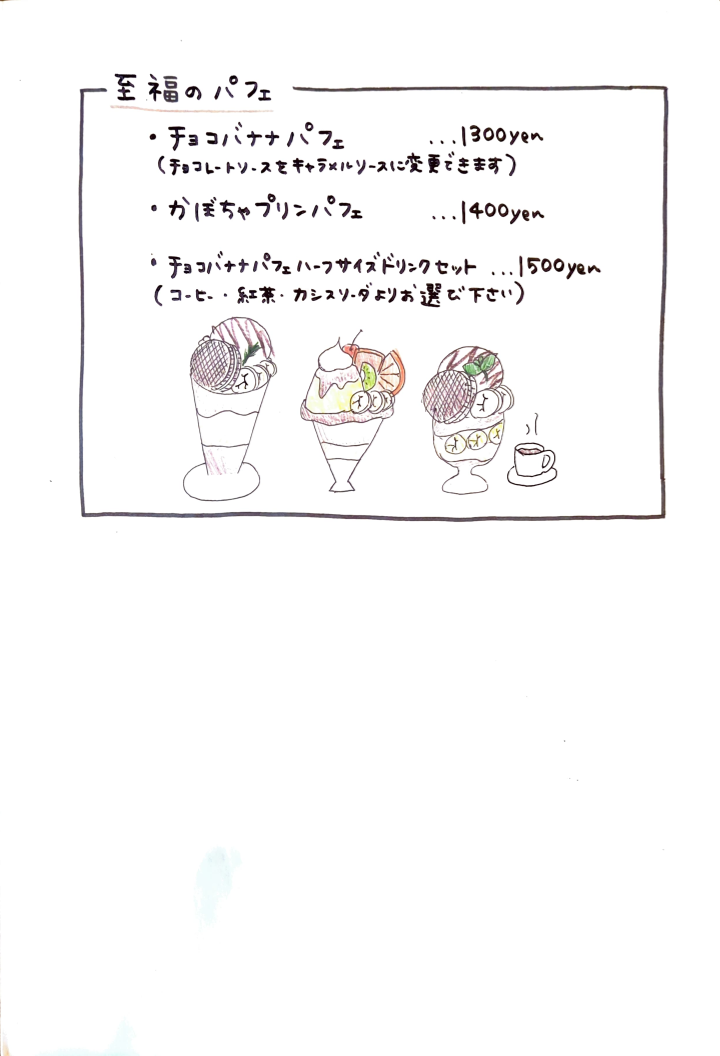 至福のパフェ
・チョコバナナパフェ ...1300yen
(チョコレートソースをキャラメルソースに変更できます)
・かぼちゃプリンパフェ ...1400yen
・チョコバナナパフェハーフサイズドリンクセット ...1500yen
(コーヒー・紅茶・カシスソーダよりお選び下さい)